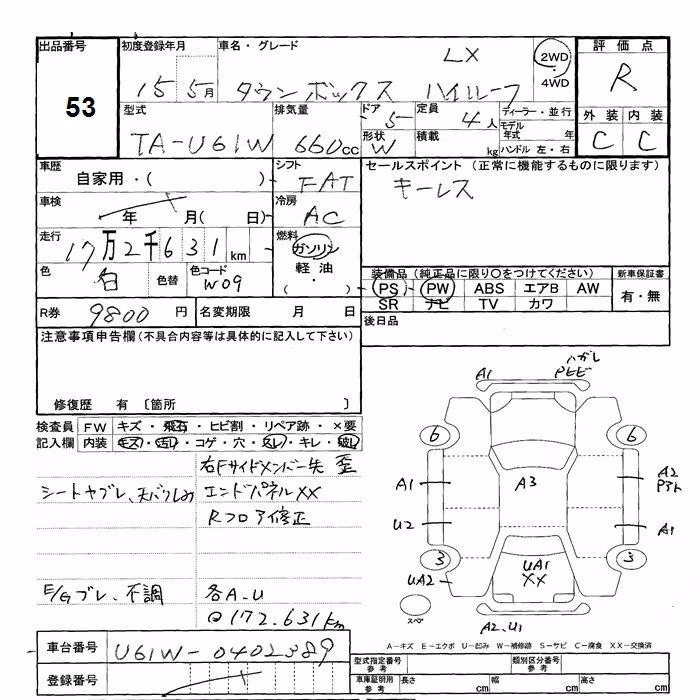 出品番号 初度登録年月 車名・グレード LX 2WD・4WD 評価点
53 15 5月 タウンボックス ハイルーフ R
型式 排気量 ドア 5 定員 4人 ディーラー・並行 外装 内装
TA-U61W 660cc 形状 W 積載 kg モデル年式 年 ハンドル 左・右 C C
車歴 自家用・( ) シフト FAT セールスポイント (正常に機能するものに限ります)
車検 年 月( 日) 冷房 AC キーレス
走行 17万2千631km 燃料 ガソリン 軽油 (・)
色 白 色替 色コード W09 装備品 (純正品に限り〇をつけてください) 新車保証書
PS PW ABS エアB AW 有・無
SR ナビ TV カワ
R券 9800円 名変期限 月 日 後日品
注意事項申告欄 (不具合内容等は具体的に記入して下さい)
修復歴 有 〔箇所 〕
検査員記入欄 FW キズ・飛石・ヒビ割・リペア跡・×要
内装 キズ・汚れ・コゲ・穴・スレ・キレ・破れ
右Fサイドメンバー先 歪
シートヤブレ、天バリしみ エンドパネルXX
Rフロア修正
E/Gブレ、不調 各A.U
172.631km
車台番号 U61W-0402389
登録番号
ハガレ
A1
6 6
A1 A3 A2
U2 A1
3 3
UA2 UA1
XX
スペア
A2.U1
A-キズ E-エクボ U-凹み W-補修跡 S-サビ C-腐食 XX-交換済
型式指定番号 参考 類別区分番号 参考
車庫証明用 参考 長さ cm 幅 cm 高さ cm